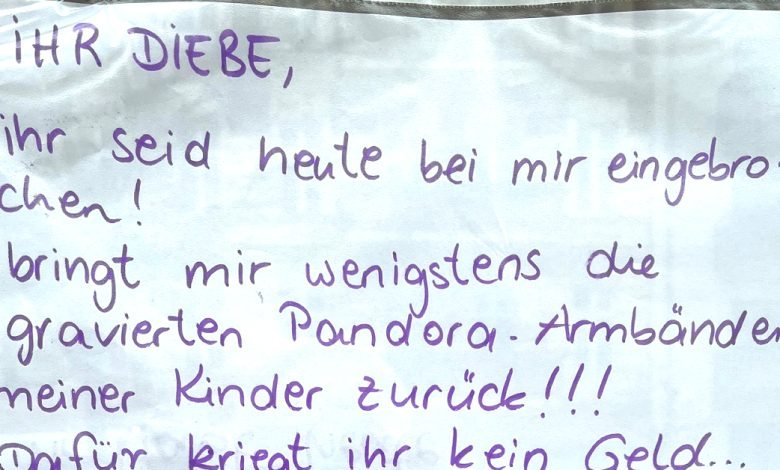 IHR DIEBE,
ihr seid heute bei mir eingebro-
chen!
bringt mir wenigstens die
gravierten Pandora-Armbänder
meiner Kinder zurück!!!
Dafür kriegt ihr kein Geld...